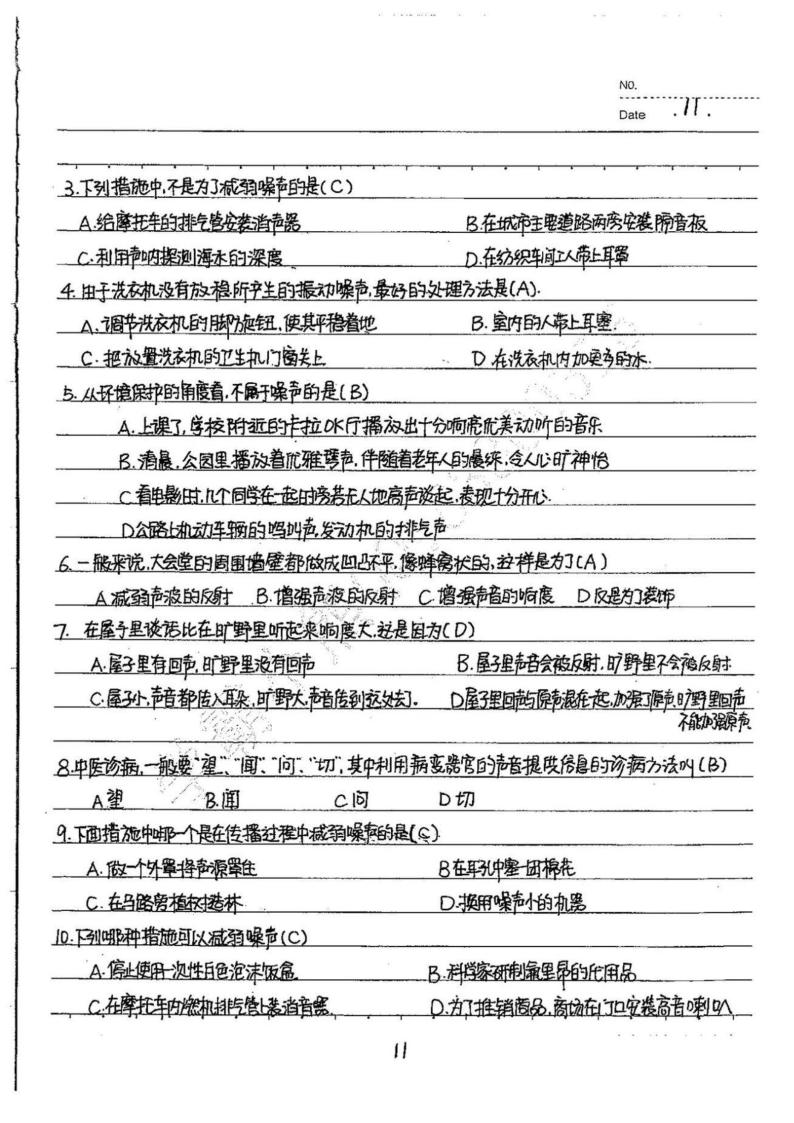 No.
Date .11.
3.下列措施中,不是为了减弱噪声的是(C)
A.给摩托车的排气管安装消声器 B.在城市主要道路两旁安装隔音板
C.利用声呐探测海水的深度 D.在纺织车间工人带上耳罩
4.由于洗衣机没有放稳所产生的振动噪声,最好的处理方法是(A).
A.调节洗衣机的脚旋钮,使其平稳着地 B.室内的人带上耳塞.
C.把放置洗衣机的卫生机门窗关上 D.在洗衣机内加更多的水.
5.从环境保护的角度看,不属于噪声的是(B)
A.上课了,学校附近的卡拉OK厅播放出十分响亮优美动听的音乐
B.清晨,公园里播放着优雅琴声,伴随着老年人的晨练,令人心旷神怡
C看电影时,几个同学在一起时旁若无人地高声谈起,表现十分开心.
D公路上机动车辆的鸣叫声,发动机的排气声
6.一般来说,大会堂的周围墙壁都做成凹凸不平,像蜂窝状的,这样是为了(A)
A减弱声波的反射 B.增强声波的反射 C.增强声音的响度 D仅是为了装饰
7. 在屋子里谈话比在旷野里听起来响度大,这是因为(D)
A.屋子里有回声,旷野里没有回声 B.屋子里声音会被反射,旷野里不会被反射
C.屋子小,声音都传入耳朵,旷野大,声音传到远处去了. D屋子里回声与原声混在一起,加强了原声,旷野里回声
不能加强原声
8.中医诊病,一般要“望”、“闻”、“问”、“切”,其中利用病变器官的声音提供信息的诊病方法叫(B)
A望 B.闻 C问 D切
9.下面措施中哪一个是在传播过程中减弱噪声的是(C)
A.做一个外罩将声源罩住 B在耳孔中塞一团棉花
C.在马路旁植树造林 D.换用噪声小的机器
10.下列哪种措施可以减弱噪声(C)
A.停止使用一次性白色泡沫饭盒 B.科学家研制氟里昂的代用品
C.在摩托车内燃机排气管上装消音器 D.为了推销商品,商场在门口安装高音喇叭
11